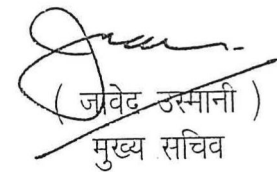 ( जावेद उस्मानी )
मुख्य सचिव